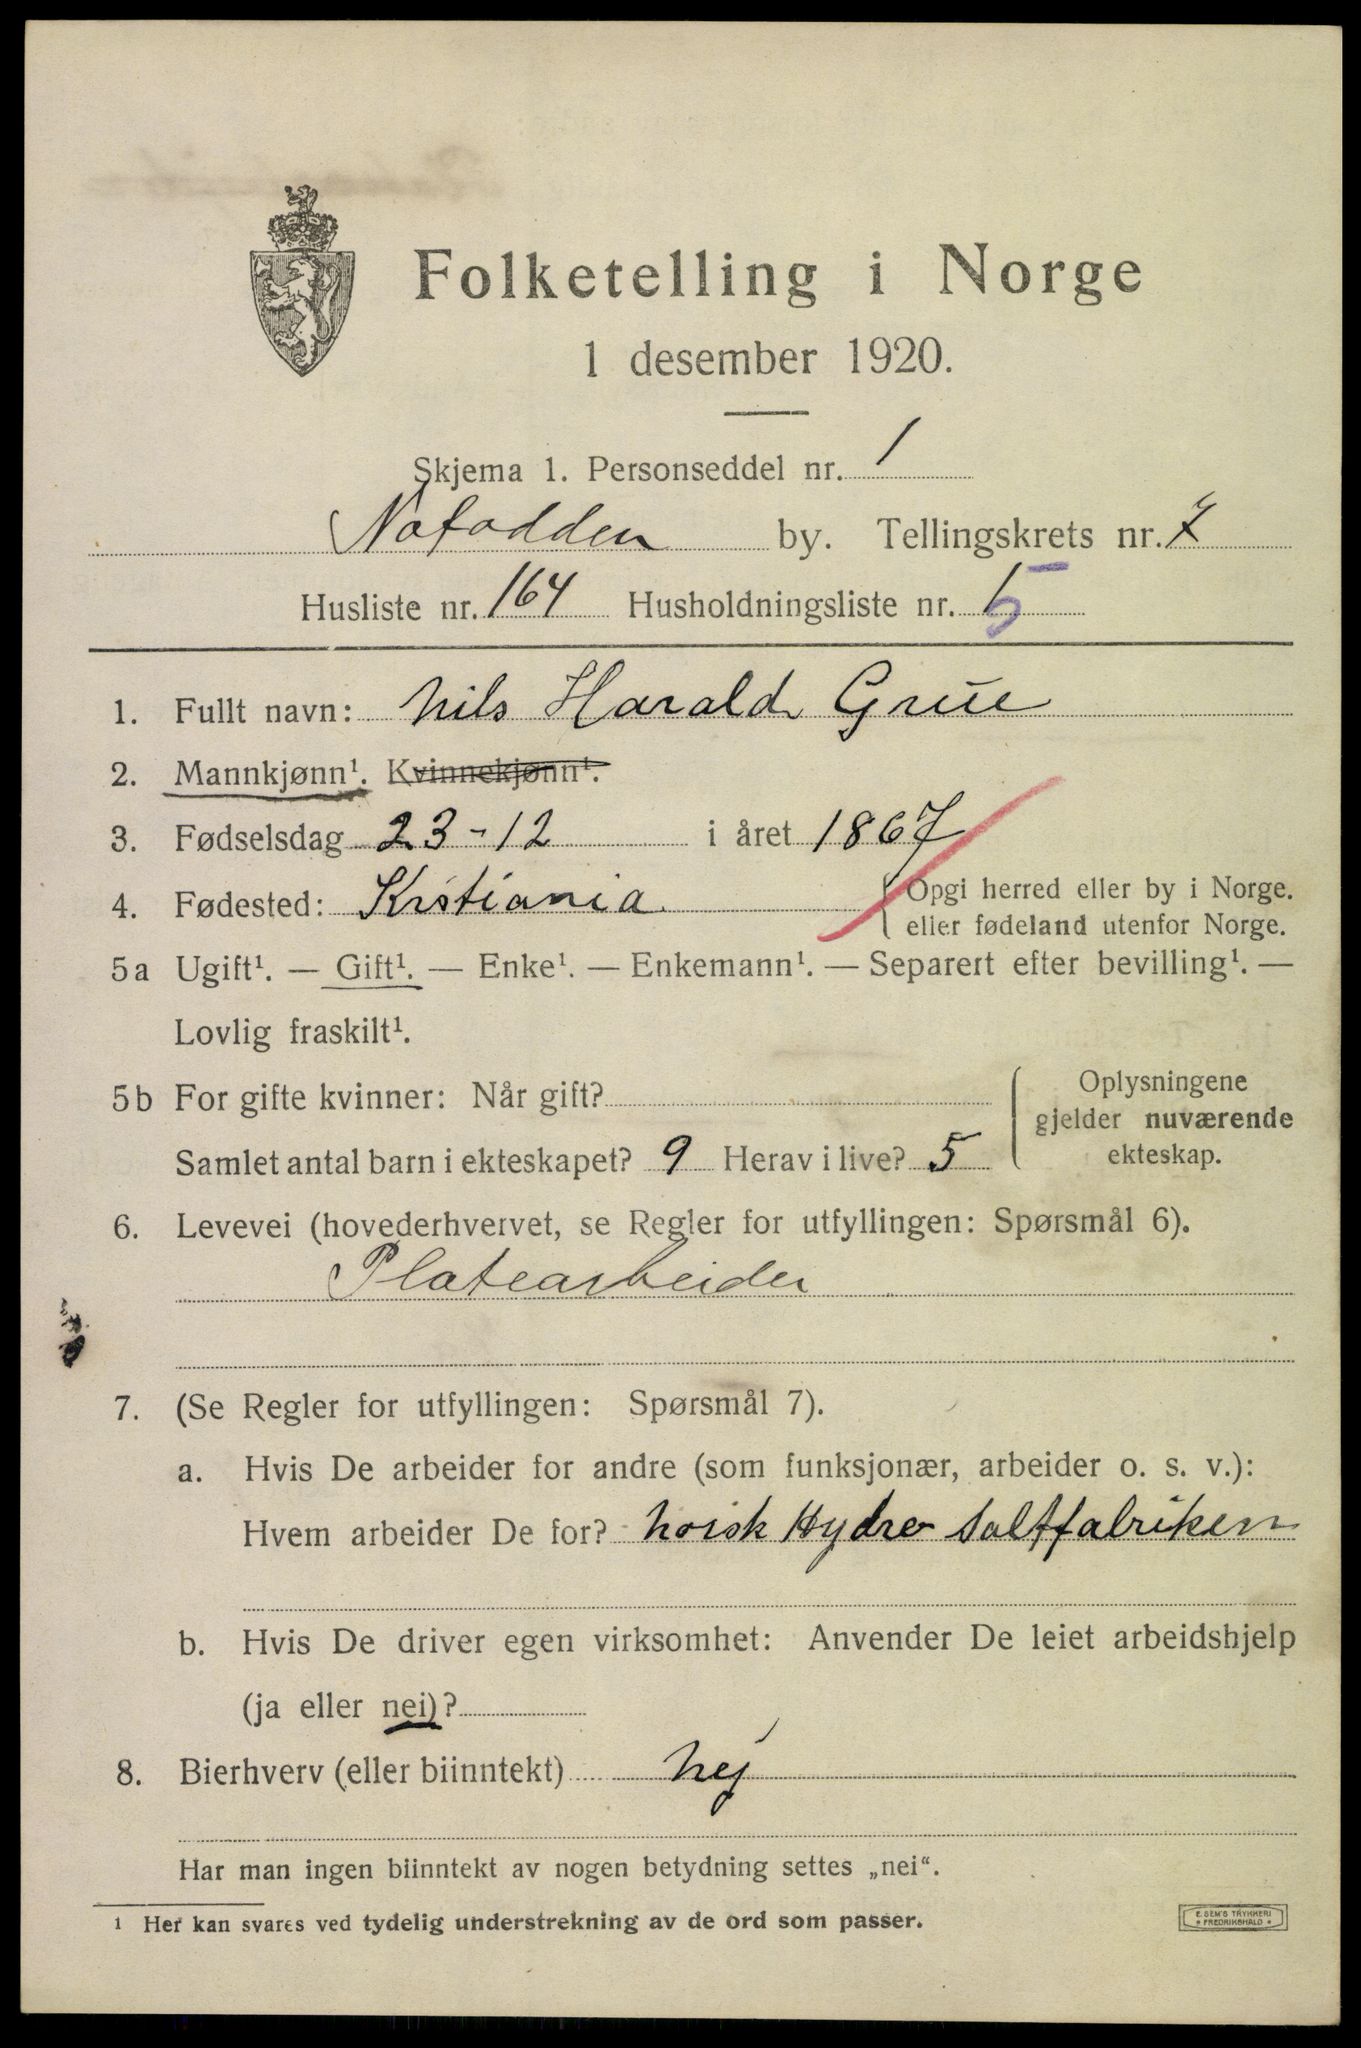 Folketelling i Norge
1 desember 1920.
Skjema 1. Personseddel nr. 1
Notodden by. Tellingskrets nr. 7
Husliste nr. 164 Husholdningsliste nr. 5
1. Fullt navn: Nils Harald Grue
2. Mannkjønn¹. Kvinnekjønn¹.
3. Fødselsdag 23-12 i året 1867
4. Fødested: Kristiania { Opgi herred eller by i Norge.
eller fødeland utenfor Norge.
5a Ugift¹. — Gift¹. — Enke¹. — Enkemann¹. — Separert efter bevilling¹. —
Lovlig fraskilt¹.
5b For gifte kvinner: Når gift?
Samlet antal barn i ekteskapet? 9 Herav i live? 5
Oplysningene
gjelder nuværende
ekteskap.
6. Levevei (hovederhvervet, se Regler for utfyllingen: Spørsmål 6).
Platearbeider
7. (Se Regler for utfyllingen: Spørsmål 7).
a. Hvis De arbeider for andre (som funksjonær, arbeider o. s. v.):
Hvem arbeider De for? Norsk Hydro Saltfabriken
b. Hvis De driver egen virksomhet: Anvender De leiet arbeidshjelp
(ja eller nei)?
8. Bierhverv (eller biinntekt) Nej
Har man ingen biinntekt av nogen betydning settes „nei“.
¹ Her kan svares ved tydelig understrekning av de ord som passer.
E. SEM'S TRYKKERI
* FREDRIKSHALD *